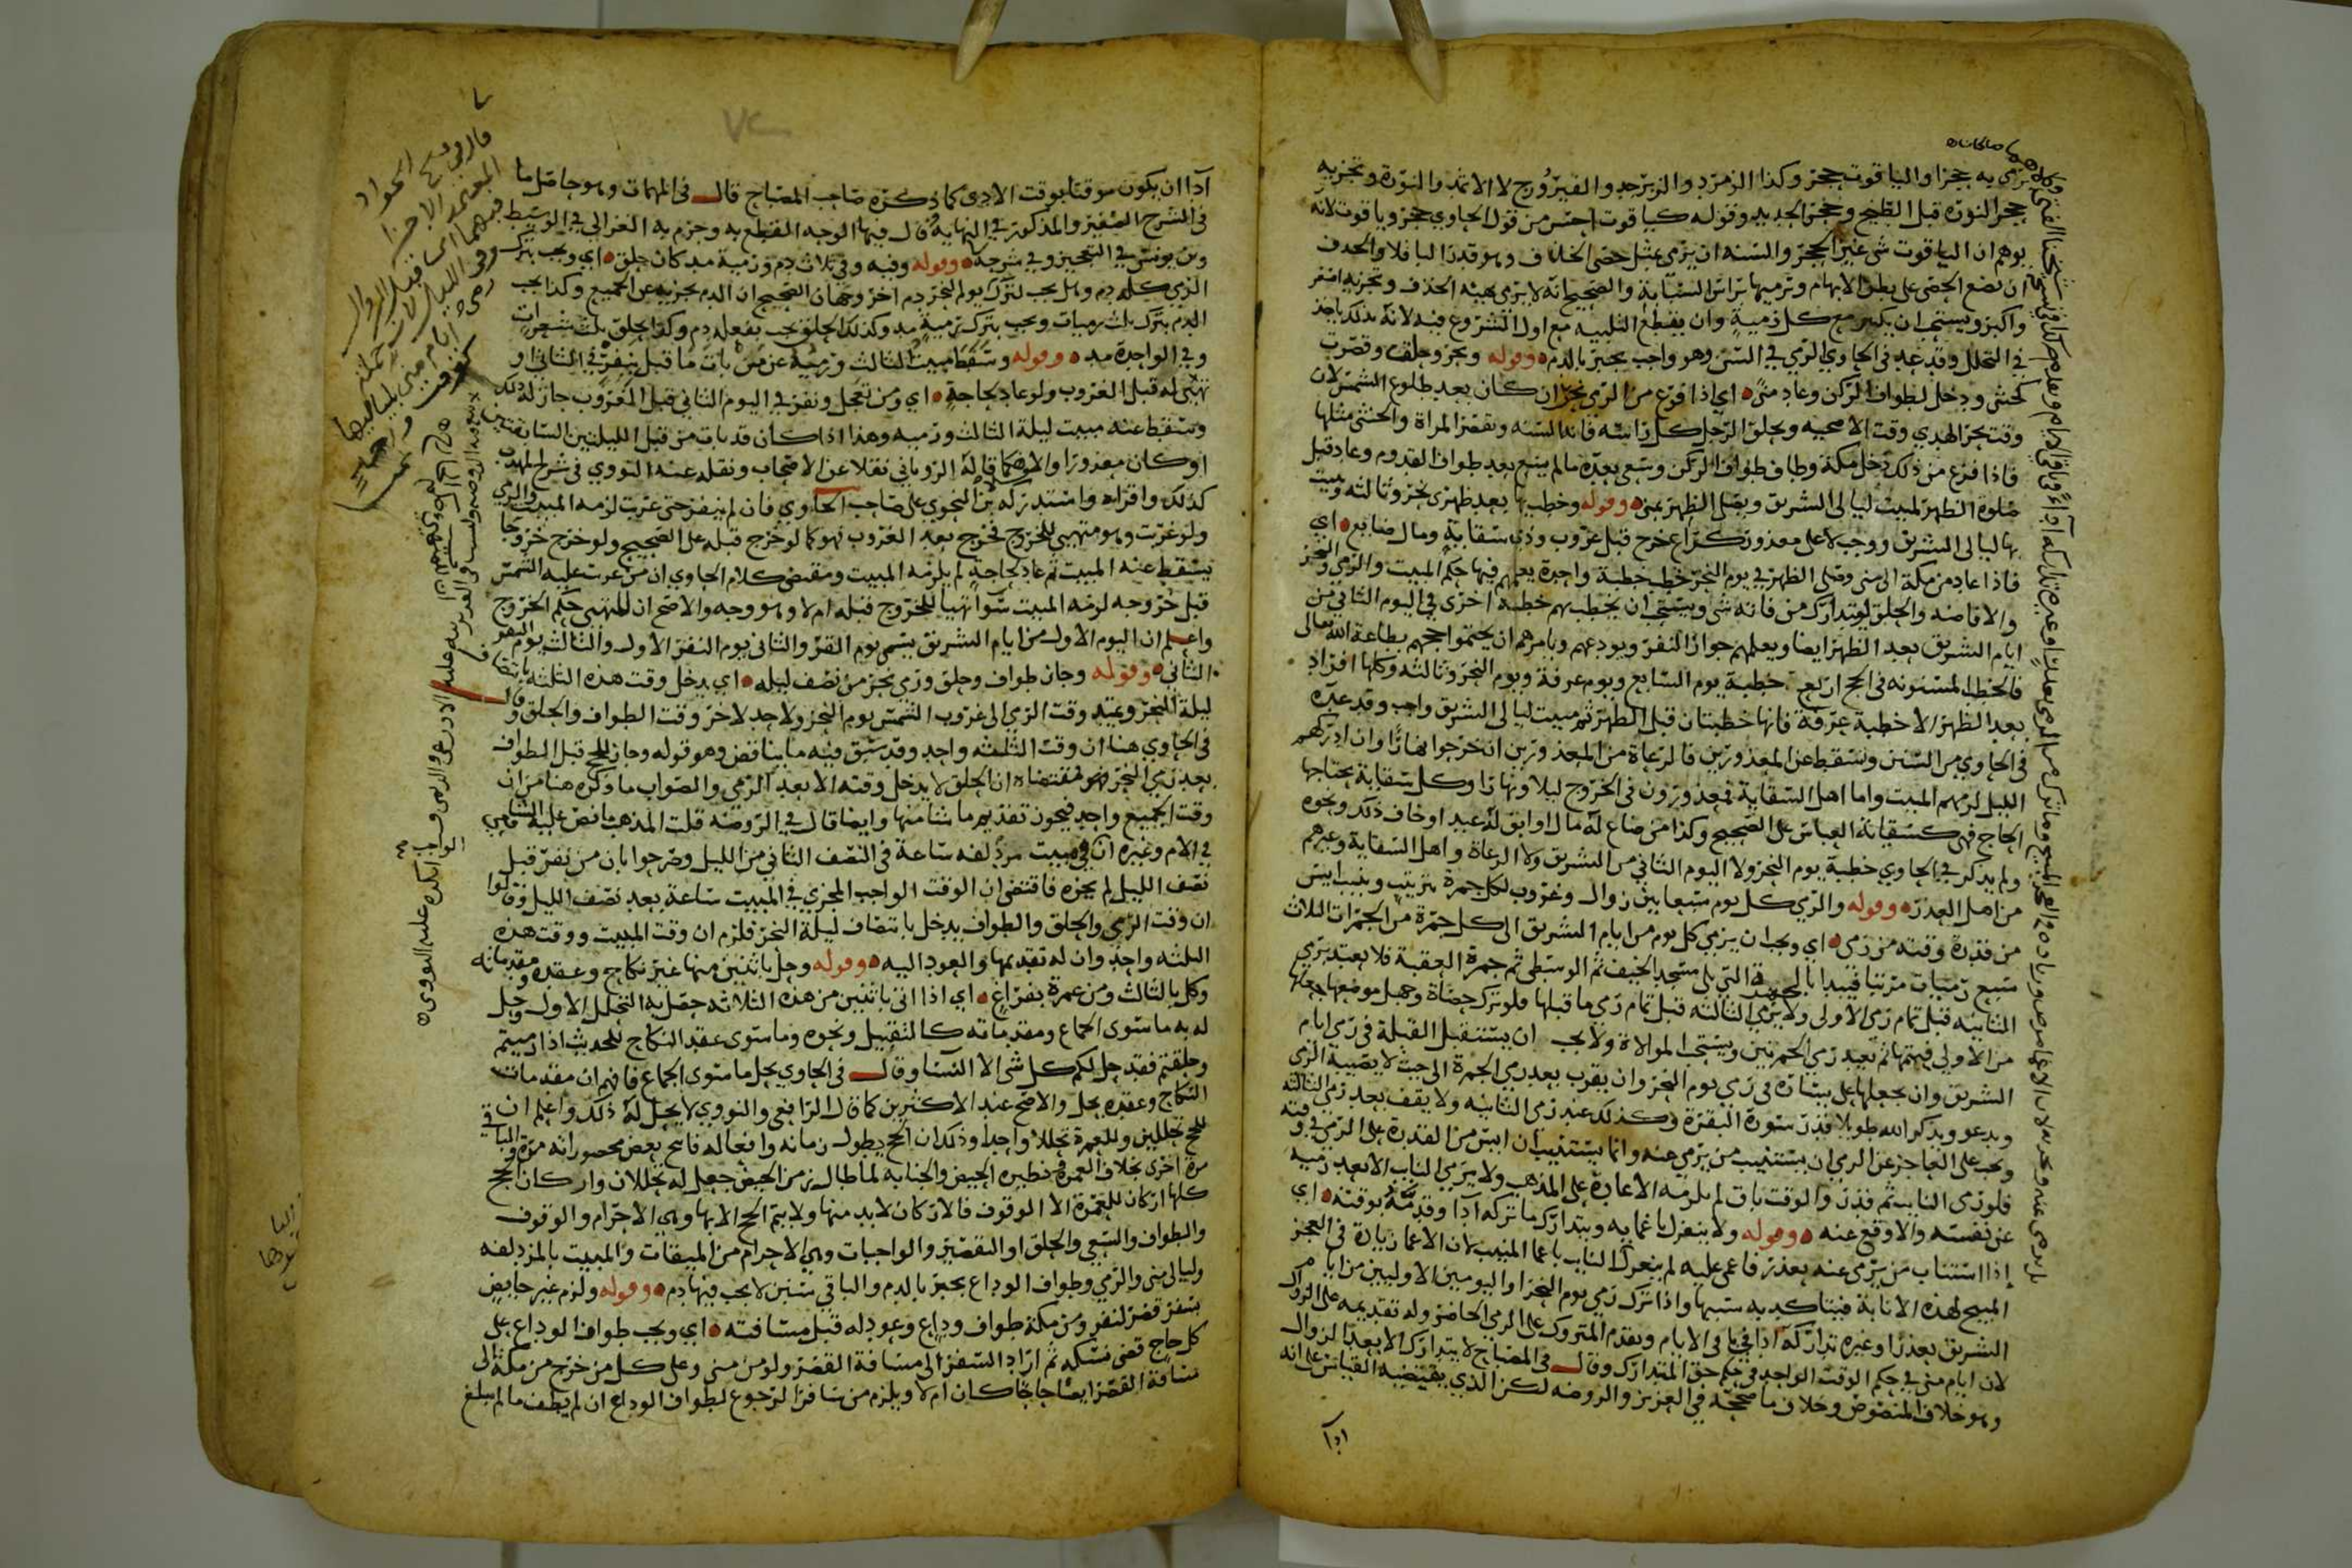 يرمى به حجرا والياقوت حجر وكذا الزمرد والزبرجد والفيروزج لا الاثمد والنورة وتجزيه
حجر النورة قبل الطبخ وحجر الحديد وقوله كياقوت احسن من قول الحاوي حجر وياقوت لانه
يوهم ان الياقوت شي غير الحجر والسنة ان يرمى بمثل حصى الخذف وهو قدر الباقلا والخذف
ان تضع الحصى على بطن الابهام وترميها براس السبابة والصحيح انه لا يرمى بهيئة الخذف وتجزيه اصغر
واكبر ويستحب ان يكبر مع كل رمية وان يقطع التلبيه مع اول الشروع فيه لانه بذلك ياخذ
في التحلل وقد عد في الحاوي الرمي في السنن وهو واجب يجبر بالدم وقوله ونحر وحلق وقصرت
كخنثى ودخل لطواف الركن وعاد منى اي اذا فرغ من الرمي نحر ان كان بعد طلوع الشمس لان
وقت نحر الهدي وقت الاضحيه ويحلق الرجل كل راسه فانه السنه وتقصر المراة والخنثى مثلها
فاذا فرغ من ذلك دخل مكة وطاف طواف الركن وسعى بعده مالم يسع بعد طواف القدوم وعاد قبل
صلوة الظهر لمبيت ليالى التشريق ويصلى الظهر بمنى وقوله وخطب بها بعد ظهرى نحر وثالثه ومبيت
بها ليالى التشريق ووجب لا على معذور كراع خرج قبل غروب وذي سقاية ومال ضايع اي
فاذا عاد من مكة الى منى وصلى الظهر في يوم النحر خطب خطبة واحدة يعلمهم فيها حكم المبيت والرمي والنحر
والافاضه والحلق ليتدارك من فاته شي ويستحب ان يخطب بهم خطبة اخرى في اليوم الثاني من
ايام التشريق بعد الظهر ايضا ويعلمهم جواز النفر ويودعهم ويامرهم ان يختموا حجهم بطاعة الله تعالى
فالخطب المسنونه في الحج اربع خطبة يوم السابع ويوم عرفة ويوم النحر وثالثه وكلها افراد
بعد الظهر الا خطبة عرفة فانها خطبتان قبل الظهر ثم مبيت ليالى التشريق واجب وقد عده
في الحاوي من السنن ويسقط عن المعذورين فالرعاة من المعذورين ان خرجوا نهارا وان ادركهم
الليل لزمهم المبيت واما اهل السقاية فمعذورون في الخروج ليلا ونهارا وكل سقاية يحتاجها
الحاج فهى كسقاية العباس على الصحيح وكذا من ضاع له مال او ابق له عبد او خاف ذلك ونحوه
ولم يذكر في الحاوي خطبة يوم النحر ولا اليوم الثاني من التشريق ولا الرعاة واهل السقاية وغيرهم
من اهل العذر وقوله والرمي كل يوم سبعا بين زوال وغروب لكل جمرة بترتيب وينيب ايس
من قدرة وقته من رمى اي ويجب ان يرمي كل يوم من ايام التشريق الى كل جمرة من الجمرات الثلاث
سبع رميات مرتبا فيبدا بالجمرة التي تلى مسجد الخيف ثم الوسطى ثم جمرة العقبة فلا يعتد برمي
الثانيه قبل تمام رمي الاولى ولا برمي الثالثه قبل تمام رمى ما قبلها فلو ترك حصاة وجهل موضعها جعلها
من الاولى فيتمها ثم يعيد رمي الجمرتين ويستحب الموالاة ولا يجب ان يستقبل القبلة في رمى ايام
التشريق وان يجعلها على يساره في رمي يوم النحر وان يقرب بعد رمي الجمرة الى حيث لا يصيبه الرمى
ويدعو ويذكر الله طويلا قدر سورة البقرة وكذلك عند رمى الثانيه ولا يقف بعد رمى الثالثه
ويجب على العاجز عن الرمي ان يستنيب من يرمي عنه وانما يستنيب ان ايس من القدرة على الرمي في وقته
فلو رمى النايب ثم قدر والوقت باق لم يلزمه الاعادة على المذهب ولا يرمي النايب الا بعد رميه
عن نفسه والا وقع عنه وقوله ولا ينعزل باغمايه ويتدارك ما تركه ادا وقدمه بوقته اي
اذا استناب من يرمى عنه بعذر فاغمى عليه لم ينعزل النايب باغما المنيب لان الاغما زيادة في العجز
المبيح لهذه الانابة فيتاكد به سببها واذا ترك رمي يوم النحر او اليومين الاوليين من ايام
التشريق بعذر او غيره تداركه ادا في باقى الايام ويقدم المتروك على الرمى الحاضر وله تقديمه على الزوال
لان ايام منى في حكم الوقت الواحد في حكم حق المتدارك وقال في المصباح لا يتدارك الا بعد الزوال
وهو خلاف المنصوص وخلاف ما صححه في العزيز والروضه لكن الذي يقتضيه القياس على انه
ادا
ادا ان يكون موقتا بوقت الادى كما ذكره صاحب المصباح قال في المهمات وهو حاصل ما
في الشرح الصغير والمذكور في النهاية قال فيها الوجه القطع به وجزم به الغزالي في الوسيط
وبن يونس في التعجيز وفي شرحه وقوله وفيه وفي ثلاث دم ورمية مد كان حلق اي ويجب بترك
الرمي كله دم وهل يجب لترك يوم النحر دم اخر وجهان الصحيح ان الدم يجزيه عن الجميع وكذا يجب
الدم بترك ثلث رميات ويجب بترك رمية مد وكذلك الحلق يجب بفعله دم وكذا يحلق ثلث شعرات
وفي الواحدة مد وقوله وسقط مبيت الثالث ورميه عن من بات ما قبل بنفر في الثاني او
تهيى له قبل الغروب ولو عاد لحاجة اي ومن تعجل ونفر في اليوم الثاني قبل الغروب جاز له ذلك
وسقط عنه مبيت ليلة الثالث ورميه وهذا اذا كان قد بات من قبل الليلتين السابقتين
او كان معذورا والا فلا كما قاله الروياني نقلا عن الاصحاب ونقله عنه النووي في شرح المهذب
كذلك واقراه واستدركه بن النحوي على صاحب الحاوي فان لم ينفر حتى غربت لزمه المبيت والرمي
ولو غربت وهو متهيى للخروج فخرج بعد الغروب فهو كما لو خرج قبله على الصحيح ولو خرج خروجا
يسقط عنه المبيت ثم عاد لحاجة لم يلزمه المبيت ومقتضى كلام الحاوي ان من غربت عليه الشمس
قبل خروجه لزمه المبيت سوا تهيا للخروج قبله ام لا وهو وجه والاصح ان للمتهيى حكم الخروج
واعلم ان اليوم الاول من ايام التشريق يسمى يوم القر والثاني يوم النفر الاول والثالث يوم النفر
الثاني وقوله وجاز طواف وحلق ورمي نحر من نصف ليله اي يدخل وقت هذه الثلثه بانتصاف
ليلة النحر ويمتد وقت الرمي الى غروب الشمس يوم النحر ولا حد لاخر وقت الطواف والحلق وقال
في الحاوي هنا ان وقت الثلثه واحد وقد سبق فيه ما يناقض وهو قوله وجاز للحج قبل الطواف
بعد رمي النحر فهو مقتضاه ان الحلق لا يدخل وقته الا بعد الرمى والصواب ما ذكره هنا من ان
وقت الجميع واحد فيجوز تقديم ما شا منها وايضا قال في الروضه قلت المذهب ما نص عليه الشافعي
في الام وغيره ان في مبيت مزدلفه ساعة في النصف الثاني من الليل وصرحوا بان من نفر قبل
نصف الليل لم يجزه فاقتضى ان الوقت الواجب المجزي في المبيت ساعة بعد نصف الليل وقالوا
ان وقت الرمي والحلق والطواف يدخل بانتصاف ليلة النحر فلزم ان وقت المبيت ووقت هذه
الثلثه واحد وان له تقديمها والعود اليه وقوله وحل باثنين منها غير نكاح وعقده ومقدماته
وكل بالثالث ومن عمرة بفراغ اي اذا اتى باثنين من هذه الثلاثه حصل به التحلل الاول وحل
له به ما سوى الجماع ومقدماته كالتقبيل ونحوه وما سوى عقد النكاح للحديث اذا رميتم
وحلقتم فقد حل لكم كل شى الا النسا وقال في الحاوي يحل ما سوى الجماع فافهم ان مقدمات
النكاح وعقده يحل والاصح عند الاكثرين كما قال الرافعي والنووي لا يحل له ذلك واعلم ان
للحج تحللين وللعمرة تحللا واحدا وذلك ان الحج يطول زمانه وافعاله فابيح بعض محصوراته مرة والباقي
مرة اخرى بخلاف العمرة ونظيره الحيض والجنابه لما طال زمن الحيض جعل له تحللان واركان الحج
كلها اركان للعمرة الا الوقوف فالاركان لا بد منها ولا يتم الحج الا بها وهي الاحرام والوقوف
والطواف والسعي والحلق او التقصير والواجبات وهي الاحرام من الميقات والمبيت بالمزدلفه
وليالى منى والرمي وطواف الوداع يجبر بالدم والباقي سنن لا يجب فيها دم وقوله ولزم غير حايض
بسفر قصر لنفر ومن مكة طواف وداع وعود له قبل مسافته اي ويجب طواف الوداع على
كل حاج قضى نسكه ثم اراد السفر الى مسافة القصر ولو من منى وعلى كل من خرج من مكة الى
مسافة القصر ايضا حاجا كان ام لا ويلزم من سافر الرجوع لطواف الوداع ان لم يطف ما لم يبلغ